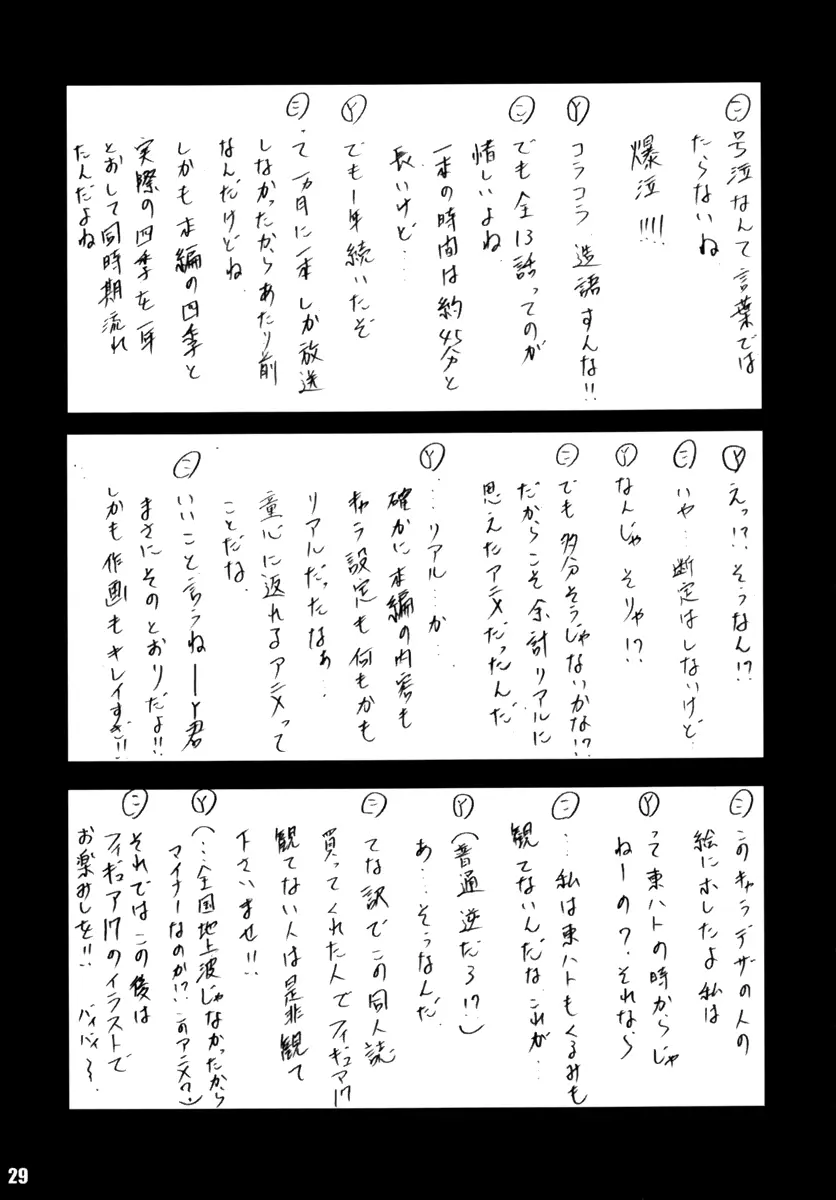 ㊁号泣なんて言葉では
たらないね
爆泣!!!!
Ⓨコラコラ 造語すんな!!
㊁でも全13話ってのが
惜しいよね
一本の時間は約45分と
長いけど…
Ⓨでも1年続いたぞ
㊁って一ヵ月に一本しか放送
しなかったからあたり前
なんだけどね
しかも本編の四季と
実際の四季を一年
とおして同時期流れ
たんだよね
Ⓨえっ!?そうなん!?
㊁いや…断定はしないけど…
Ⓨなんじゃそりゃ!?
㊁でも多分そうじゃないかな!?
だからこそ余計リアルに
思えたアニメだったんだ
Ⓨ…リアル…か
確かに本編の内容も
キャラ設定も何もかも
リアルだったなぁ…
童心に返れるアニメって
ことだな
㊁いいこと言うねーーY君
まさにそのとおりだよ!!
しかも作画もキレイすぎ!!
㊁このキャラデザの人の
絵にホレたよ私は
Ⓨって東ハトの時からじゃ
ねーの?それなら
㊁…私は東ハトもくるみも
観てないんだな これが…
Ⓨ(普通逆だろ!?)
あ…そうなんだ
㊁てな訳でこの同人誌
買ってくれた人でフィギュア17
観てない人は是非観て
下さいませ!!
Ⓨ(…全国地上波じゃなかったから
マイナーなのか!?このアニメ?)
㊁それではこの後は
フィギュア17のイラストで
お楽みしを!! バイバイ〜
29